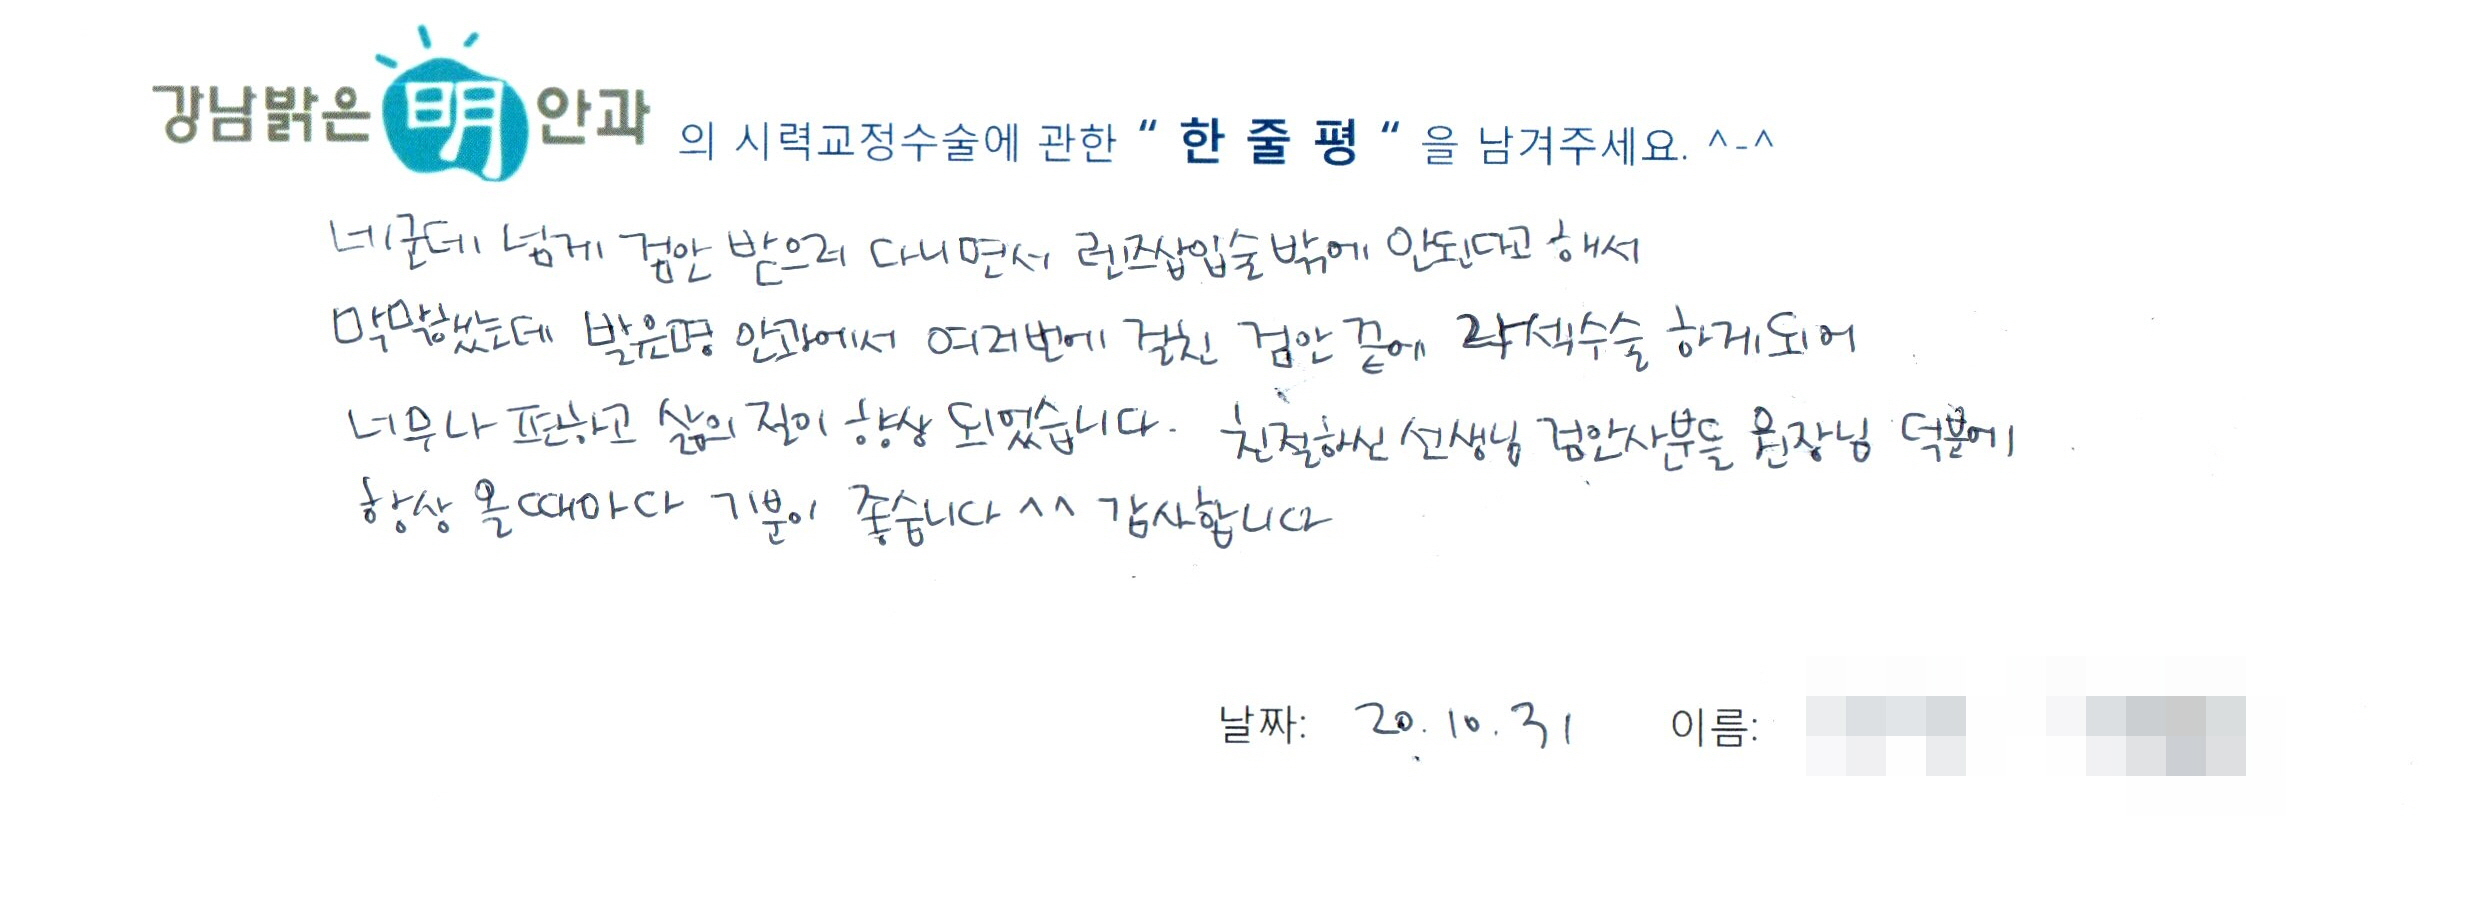 강남밝은明안과 의 시력교정수술에 관한 “ 한 줄 평 “ 을 남겨주세요. ^-^
네군데 넘게 검안 받으러 다니면서 렌즈삽입술밖에 안된다고 해서
막막했는데 밝은명 안과에서 여러번에 걸친 검안 끝에 라섹수술 하게되어
너무나 편하고 삶의 질이 향상 되었습니다. 친절하신 선생님 검안사분들 원장님 덕분에
항상 올때마다 기분이 좋습니다 ^^ 감사합니다
날짜: 20.10.31 이름: